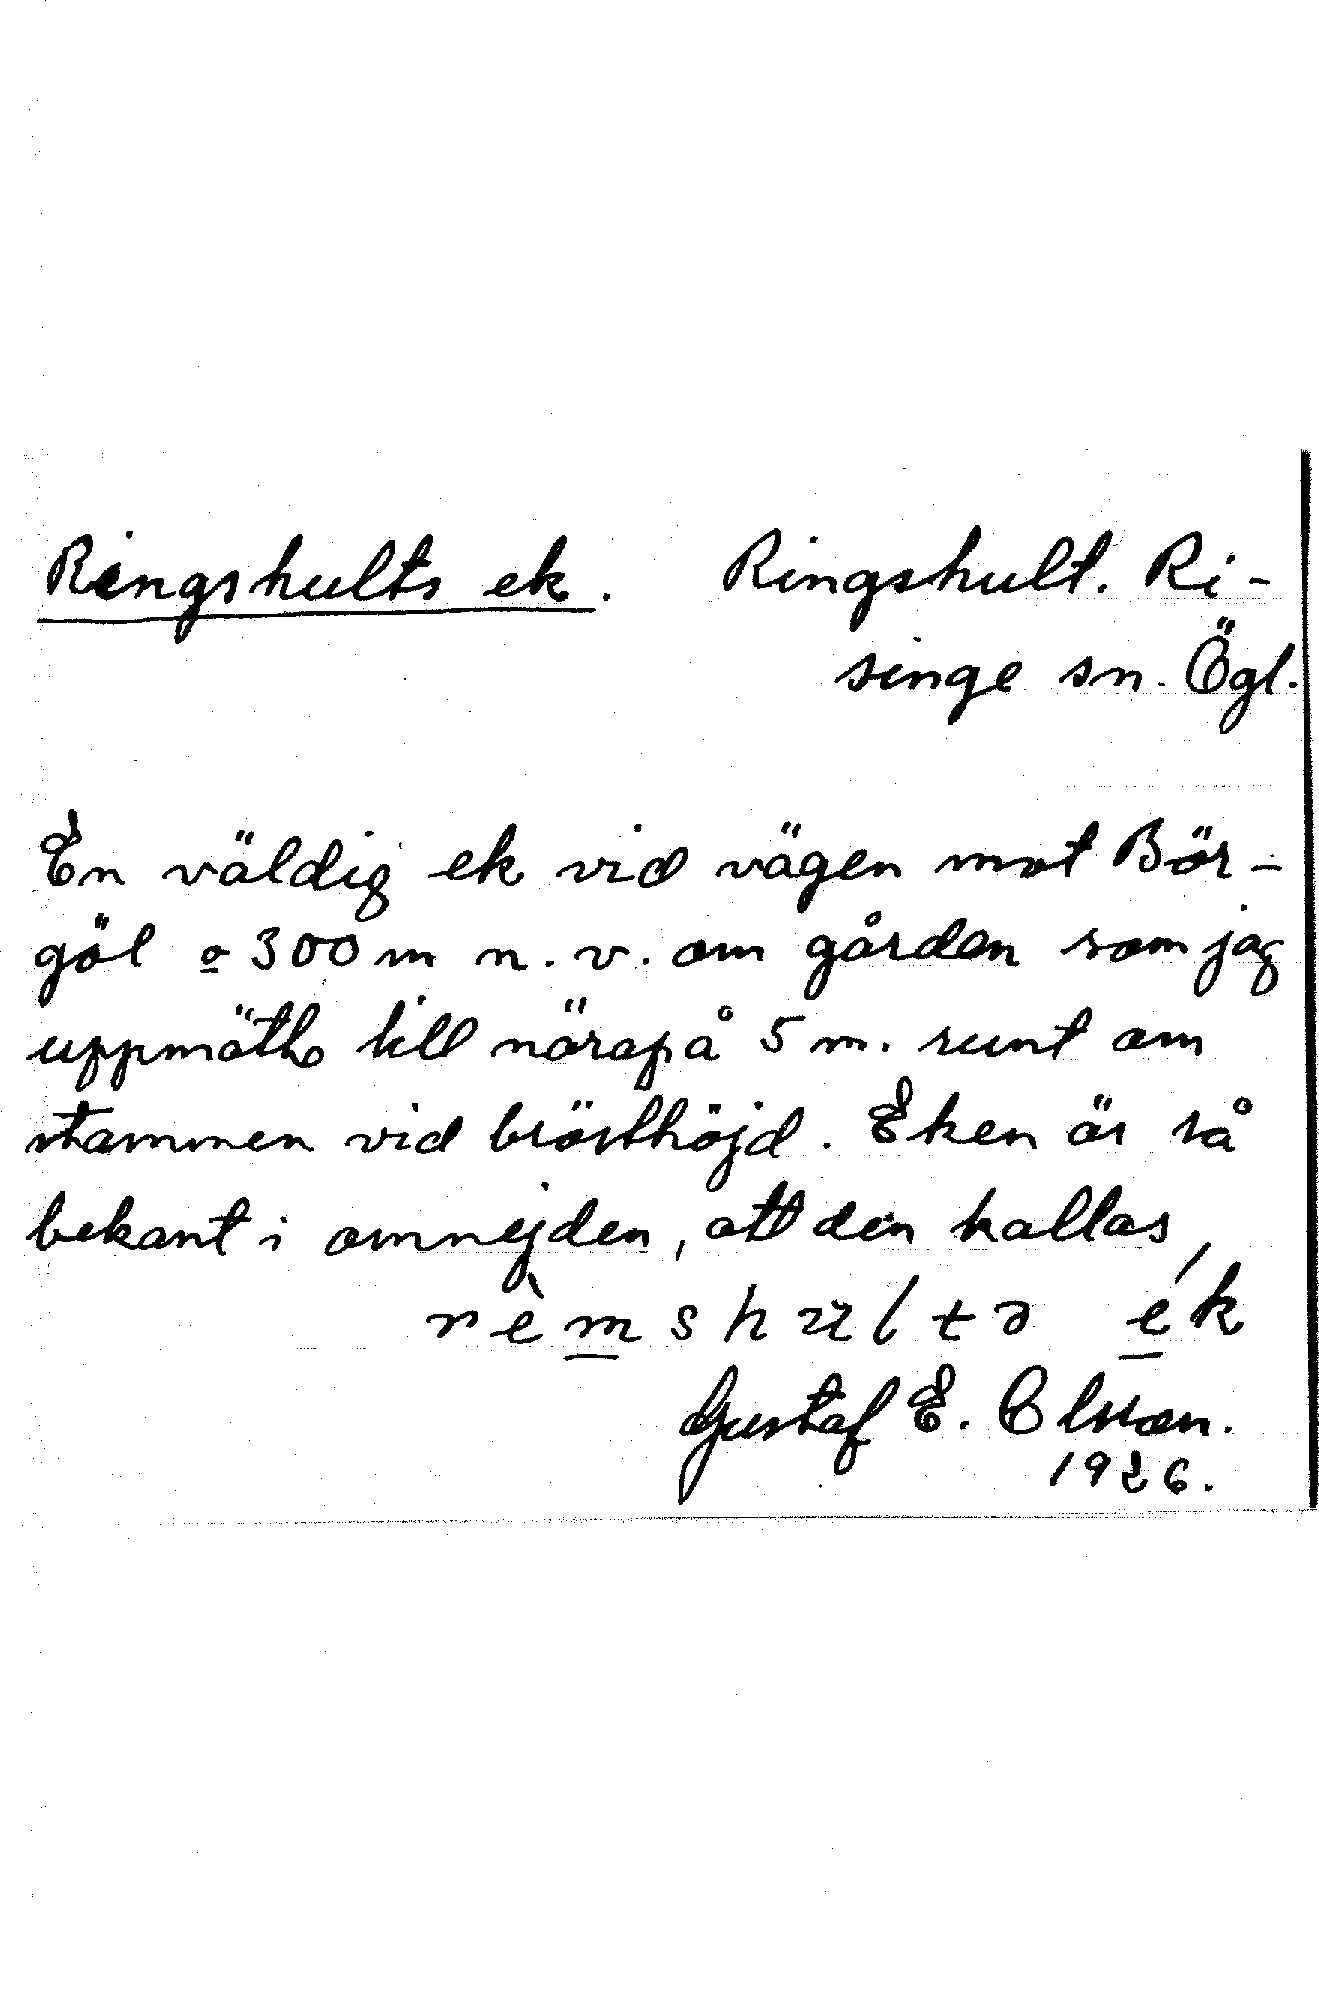 Ringshults ek. Ringshult. Ri-
singe sn. Ögl.
En väldig ek vid vägen mot Bör-
göl o 300 m n.v. om gården som jag
uppmätt till närapå 5 m. runt om
stammen vid brösthöjd. Eken är så
bekant i omnejden, att den kallas
Gustaf E. Olsson.
1926.